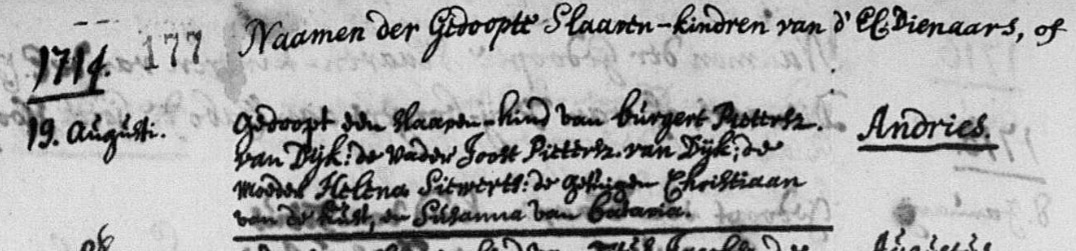 Naamen der Gedoopte Slaaven-kindren van d' E C: Dienaars, of
1714. 177
19. Augusti. Gedoopt een slaaven-kind van burgert Pietersz. Andries.
van Dijk: de vader Joost Pietersz. van Dijk; de
moeder Helena Siewerts: de getuigen Christiaan
van de Kust, en Susanna van Batavia.